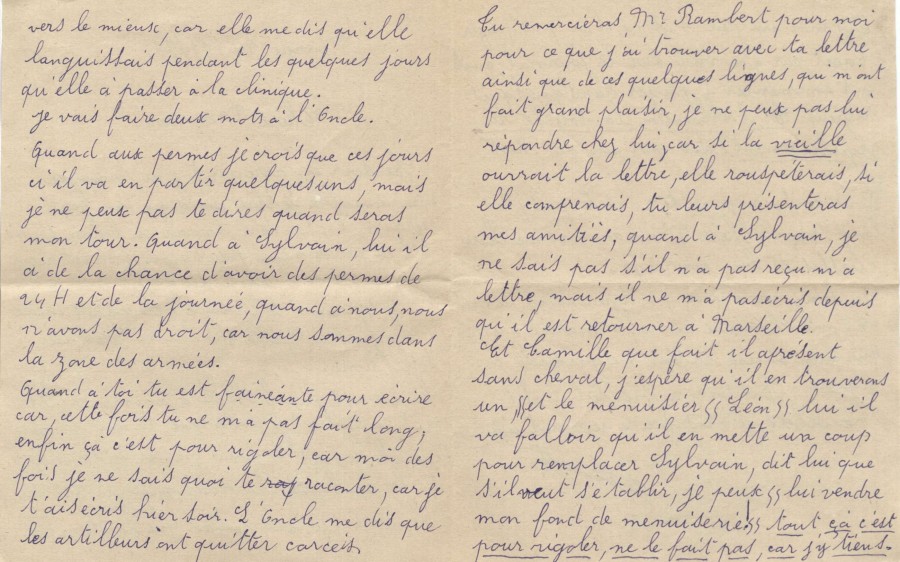 vers le mieux, car elle me dis qu'elle
languissais pendant les quelques jours
qu'elle à passer à la clinique.
Je vais faire deux mots à l'Oncle.
Quand aux permes je crois que ces jours
ci il va en partir quelquesuns, mais
je ne peux pas te dires quand seras
mon tour. Quand à Sylvain, lui il
à de la chance d'avoir des permes de
24 H et de la journée, quand à nous, nous
n'avons pas droit, car nous sommes dans
la zone des armées.
Quand à toi tu est fainéante pour écrire
car, cette fois tu ne m'à pas fait long,
enfin çà c'est pour rigoler, car moi des
fois je ne sais quoi te raconter, car je
t'ais écris hier soir. L'Oncle me dis que
les artilleurs ont quitter carceis
Tu remerciéras Mr Rambert pour moi
pour ce que j'ai trouver avec ta lettre
ainsi que de ces quelques lignes, qui m'ont
fait grand plaisir, je ne peux pas lui
répondre chez lui, car si la vieille
ouvrait la lettre, elle rouspéterais, si
elle comprenais, tu leurs présenteras
mes amitiés, quand à Sylvain, je
ne sais pas s'il n'à pas reçu m'a
lettre, mais il ne m'à pas écris depuis
qu'il est retourner à Marseille.
Et Camille que fait il aprésent
sans cheval, j'espère qu'il en trouverons
un, et le menuisier "Léon" lui il
va falloir qu'il en mette un coup
pour remplacer Sylvain, dit lui que
s'il veut s'établir, je peux "lui vendre
mon fond de menuiserie!" tout çà c'est
pour rigoler, ne le fait pas, car j'y tiens.